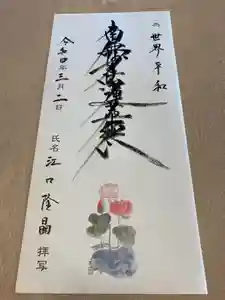 為 世界平和
南無妙法蓮華経
令和四年三月二日
氏名 江口隆昌 拝写